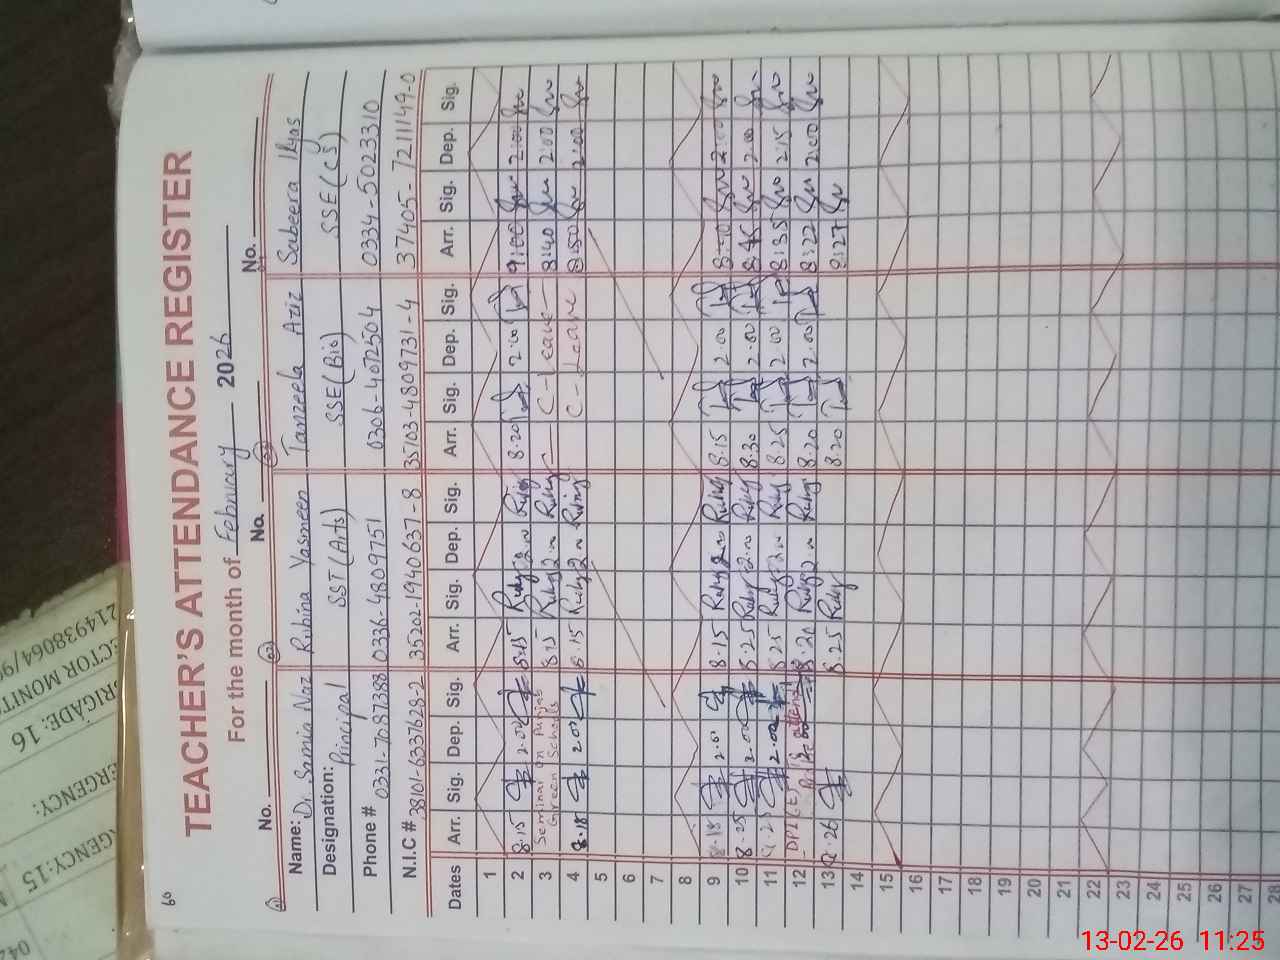 60
TEACHER'S ATTENDANCE REGISTER
For the month of February 2026
No. No. No. No.
Name: Dr. Samia Naz Rubina Yasmeen Tanzeela Aziz Sabeera Ilyas
Designation: Principal SST (Arts) SSE (Bio) SSE (CS)
Phone # 0331-7087388 0336-4809751 0306-4072504 0334-5023310
N.I.C # 38101-6337628-2 35202-1940637-8 35103-4809731-4 37405-7211149-0
Dates Arr. Sig. Dep. Sig. Arr. Sig. Dep. Sig. Arr. Sig. Dep. Sig. Arr. Sig. Dep. Sig.
1
2 8.15 2.00 8.15 Ruby 2.00 Ruby 8.20 2.00 9:00 2:00
3 Seminar on Punjab Green Schools 8.15 Ruby 2.00 Ruby C-Leave 8:40 2:00
4 8.18 2.00 8.15 Ruby 2.00 Ruby C-Leave 8:50 2:00
5
6
7
8
9 8.18 2.0 8.15 Ruby 2.00 Ruby 8.15 2.00 2:00
10 8.25 2.00 8.25 Ruby 2.00 Ruby 8.30 2.00 8:45 2:00
11 2.00 8.25 Ruby 2.00 Ruby 8.25 2.00 8:35 2:15
12 8.20 Ruby 2.00 Ruby 8.20 2.00 8:22 2:00
13 8.26 8.25 Ruby 8.20 8:27
14
15
16
17
18
19
20
21
22
23
24
25
26
27
28
214938064/99
ECTOR MONIT
BRIGADE: 16
ERGENCY:
GENCY:15
042
13-02-26 11:25